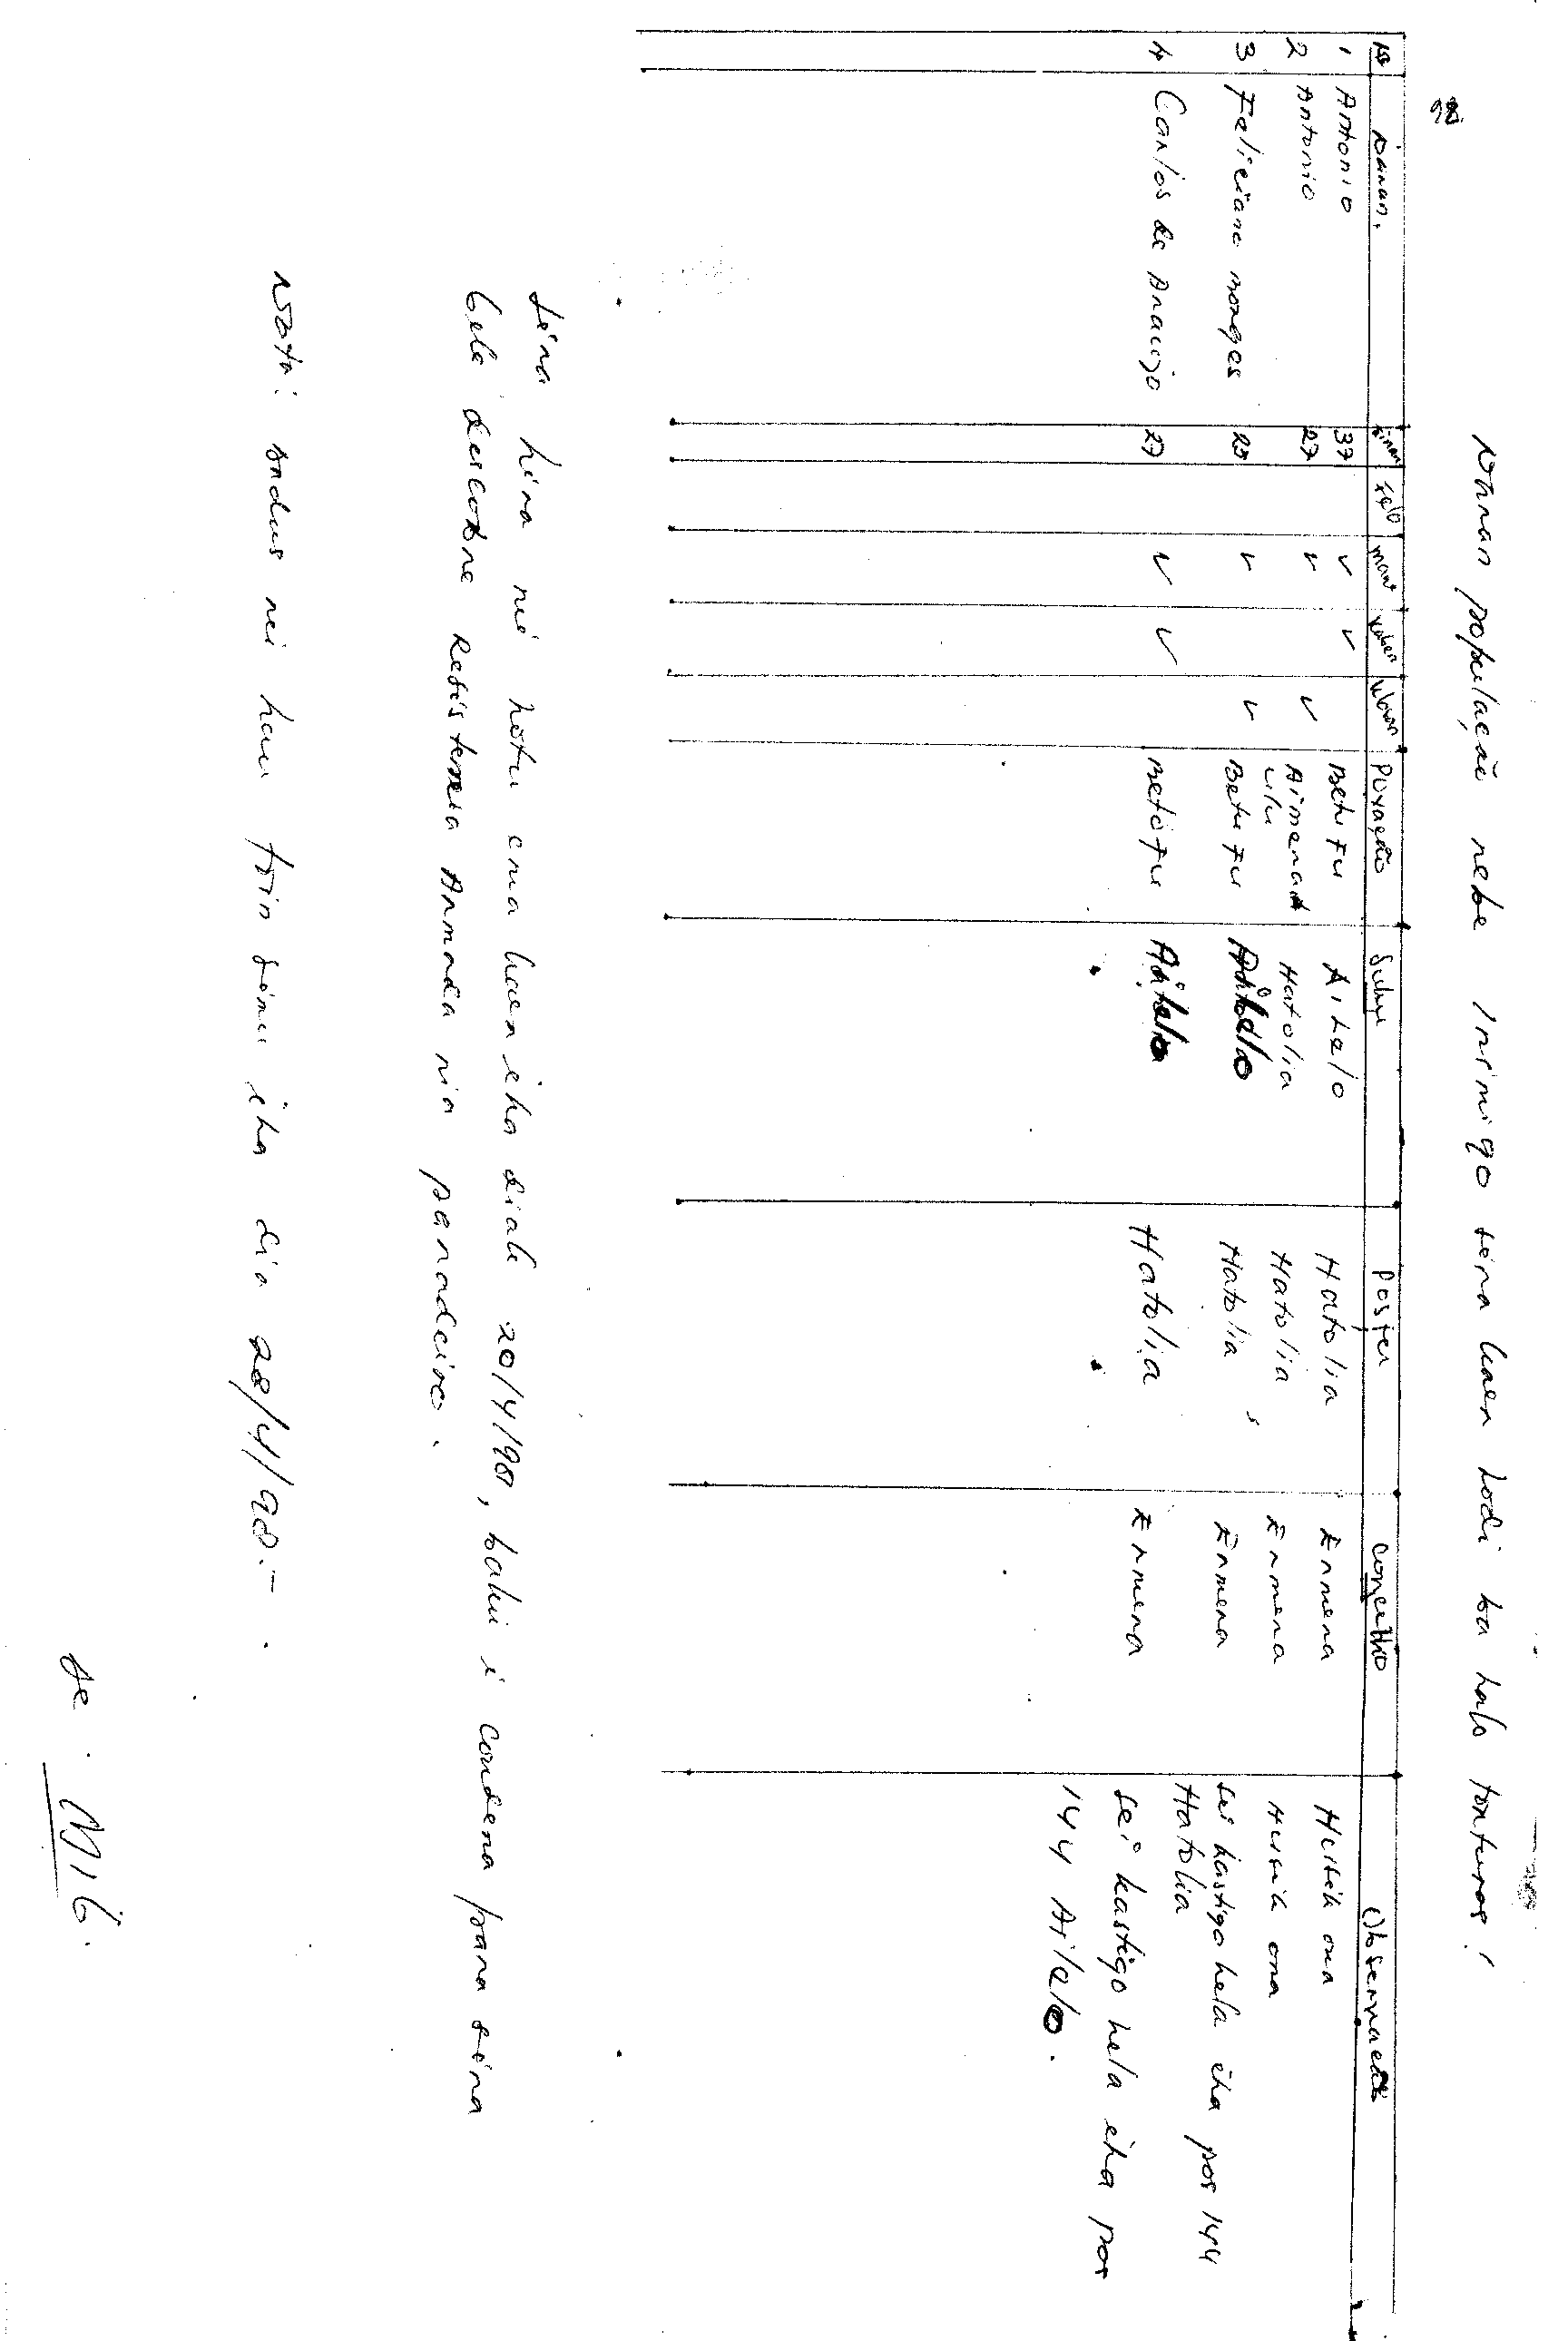 98.
Naran população nebe Inimigo sira kaer hodi ba halo torturas!
No Naran. tinan Feto mane kaben klosan Povoação Sukuu Posjeu Concelho Observacão
1 Antonio 37 ✓ ✓ Betu Fu Ailelo Hatolia Ermera Husik ona
2 Antonio 27 ✓ ✓ Aimera Ulu Hatolia Hatolia Ermera Husik ona
3 Feliciano Borges 25 ✓ ✓ Betu Fu Ailelo Hatolia Ermera sei kastigo hela iha pos 144
Hatolia
4 Carlos de Araujo 27 ✓ ✓ Beto Fu Ailelo Hatolia Ermera sei kastigo hela iha pos
144 Ailelo.
Sira hira ne hotu ema kaer iha diak 20/4/98, baku i condena para sira
bele descobre Resistensia Armada nia paradeiro.
Nota: Dadus nei hau foin simu iha dia 28/4/98.-.
de: M16.